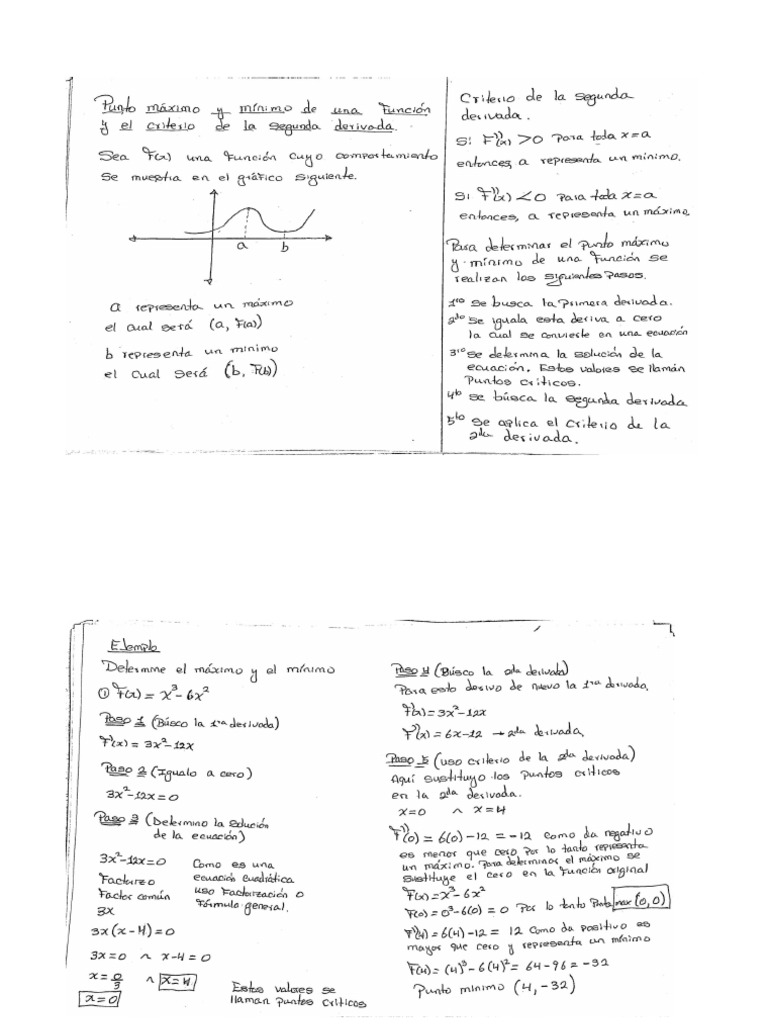 Punto máximo y mínimo de una Función
y el criterio de la segunda derivada.
Sea F(x) una Función cuyo comportamiento
se muestra en el gráfico siguiente.
a b
a representa un máximo
el cual será (a, F(a))
b representa un mínimo
el cual será (b, F(b))
Criterio de la segunda
derivada.
Si F''(x) > 0 para toda x=a
entonces, a representa un mínimo.
Si F''(x) < 0 para toda x=a
entonces, a representa un máximo.
Para determinar el punto máximo
y mínimo de una Función se
realizan los siguientes pasos.
1ro Se busca la primera derivada.
2do Se iguala esta deriva a cero
la cual se convierte en una ecuación
3ro Se determina la solución de la
ecuación. Estos valores se llamán
puntos críticos.
4to Se búsca la segunda derivada
5to Se aplica el criterio de la
2da derivada.
Ejemplo
Determine el máximo y el mínimo
① F(x) = x³-6x²
Paso 1 (Búsco la 1ra derivada)
F'(x) = 3x²-12x
Paso 2 (Igualo a cero)
3x²-12x=0
Paso 3 (Determino la solución
de la ecuación)
3x²-12x=0
Factorizo
Factor común
3x
Como es una
ecuación cuadrática
uso Factorización o
Fórmula general.
3x(x-4)=0
3x=0 ^ x-4=0
x=0/3 ^ x=4
x=0
Estos valores se
llaman puntos críticos
Paso 4 (Búsco la 2da derivada)
Para esto derivo de nuevo la 1ra derivada.
F'(x)=3x²-12x
F''(x)=6x-12 → 2da derivada.
Paso 5 (uso criterio de la 2da derivada)
Aquí sustituyo los puntos críticos
en la 2da derivada.
x=0 ^ x=4
F''(0)=6(0)-12=-12 como da negativo
es menor que cero por lo tanto representa
un máximo. Para determinar el máximo se
sustituye el cero en la Función original
F(x)=x³-6x²
F(0)=0³-6(0)=0 Por lo tanto Punto max (0,0)
F''(4)=6(4)-12=12 como da positivo es
mayor que cero y representa un mínimo
F(4)=(4)³-6(4)²=64-96=-32
Punto mínimo (4,-32)